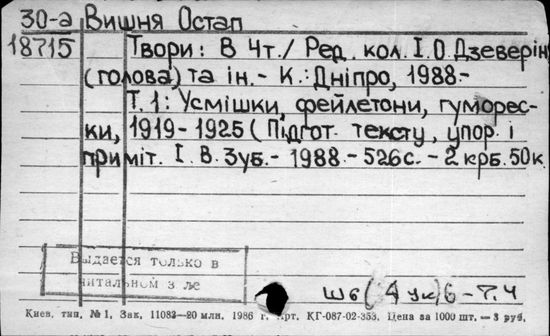 30-а Вишня Остап
18715 Твори: В 4т./ Ред. кол. І.О Дзеверін
(голова) та ін.- К.: Дніпро, 1988-
Т.1: Усмішки, фейлетони, гуморес-
ки, 1919-1925 (Підгот. тексту, упор. і
приміт. І. В. Зуб.- 1988.- 526с.- 2 крб. 50к
Выдается только в
читальном з ле
Ш6(4Ук)6-Т.4
Киев. тип. №1, Зак. 11082—20 млн. 1986 г. Арт. КГ-087-02-353. Цена за 1000 шт. — 3 руб.